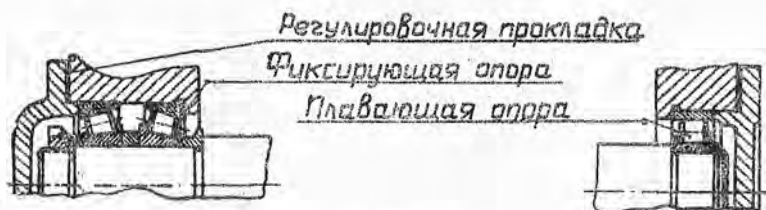 Регулировочная прокладка
Фиксирующая опора
Плавающая опора